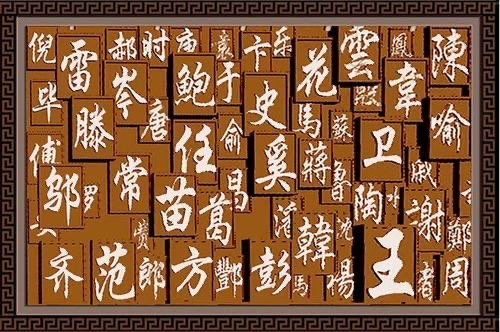 倪 雷 郝 时 庙 卞 乐 花 雲 鳳 陳
毕 滕 岑 唐 鲍 于 俞 史 馬 蘇 殷 韋 喻
俌 鄔 罗 常 任 苗 葛 昌 奚 蔣 魯 卫 戚
陶 水 謝 鄭
齐 范 郎 方 酆 彭 馬 韓 楊 王 周